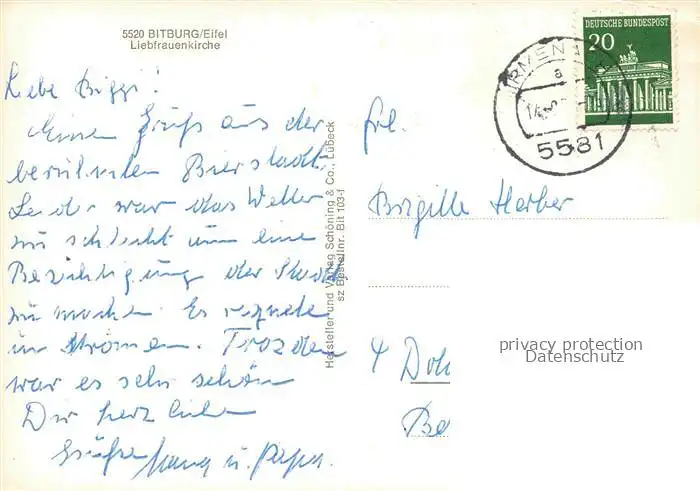 5520 BITBURG/Eifel
Liebfrauenkirche
Liebe Biggi!
Einen Gruß aus der
berühmten Bierstadt.
Leider war das Wetter
zu schlecht um eine
Besichtigung der Stadt
zu machen. Es regnete
in Strömen. Trozdem
war es sehr schön
Dir herzliche
Grüße Mama u. Papa.
Hersteller und Verlag Schöning & Co., Lübeck
sz Bestellnr. Bit 103-1
DEUTSCHE BUNDESPOST
20
a
5581
Frl.
Birgitte Herber
4 Do
Be
privacy protection
Datenschutz